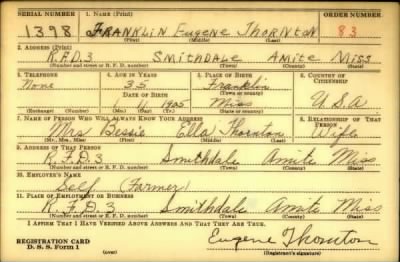 SERIAL NUMBER 1. NAME (Print) ORDER NUMBER
1398 FRANKLIN EUGENE THORNTON 83
(First) (Middle) (Last)
2. ADDRESS (Print)
R.F.D.3 SMITHDALE AMITE MISS
(Number and street or R. F. D. number) (Town) (County) (State)
3. TELEPHONE 4. AGE IN YEARS 5. PLACE OF BIRTH 6. COUNTRY OF CITIZENSHIP
None 35 Franklin
(Town or county)
DATE OF BIRTH
11 1905 Miss U.S.A
(Exchange) (Number) (Mo.) (Day) (Yr.) (State or country)
7. NAME OF PERSON WHO WILL ALWAYS KNOW YOUR ADDRESS 8. RELATIONSHIP OF THAT PERSON
Mrs Bessie Ella Thornton Wife
(Mr., Mrs., Miss) (First) (Middle) (Last)
9. ADDRESS OF THAT PERSON
R.F.D.3 Smithdale Amite Miss
(Number and street or R. F. D. number) (Town) (County) (State)
10. EMPLOYER'S NAME
Self (Farmer)
11. PLACE OF EMPLOYMENT OR BUSINESS
R.F.D.3 Smithdale Amite Miss
(Number and street or R. F. D. number) (Town) (County) (State)
I AFFIRM THAT I HAVE VERIFIED ABOVE ANSWERS AND THAT THEY ARE TRUE.
Eugene Thornton
REGISTRATION CARD
D. S. S. Form 1 (over) (Registrant's signature)